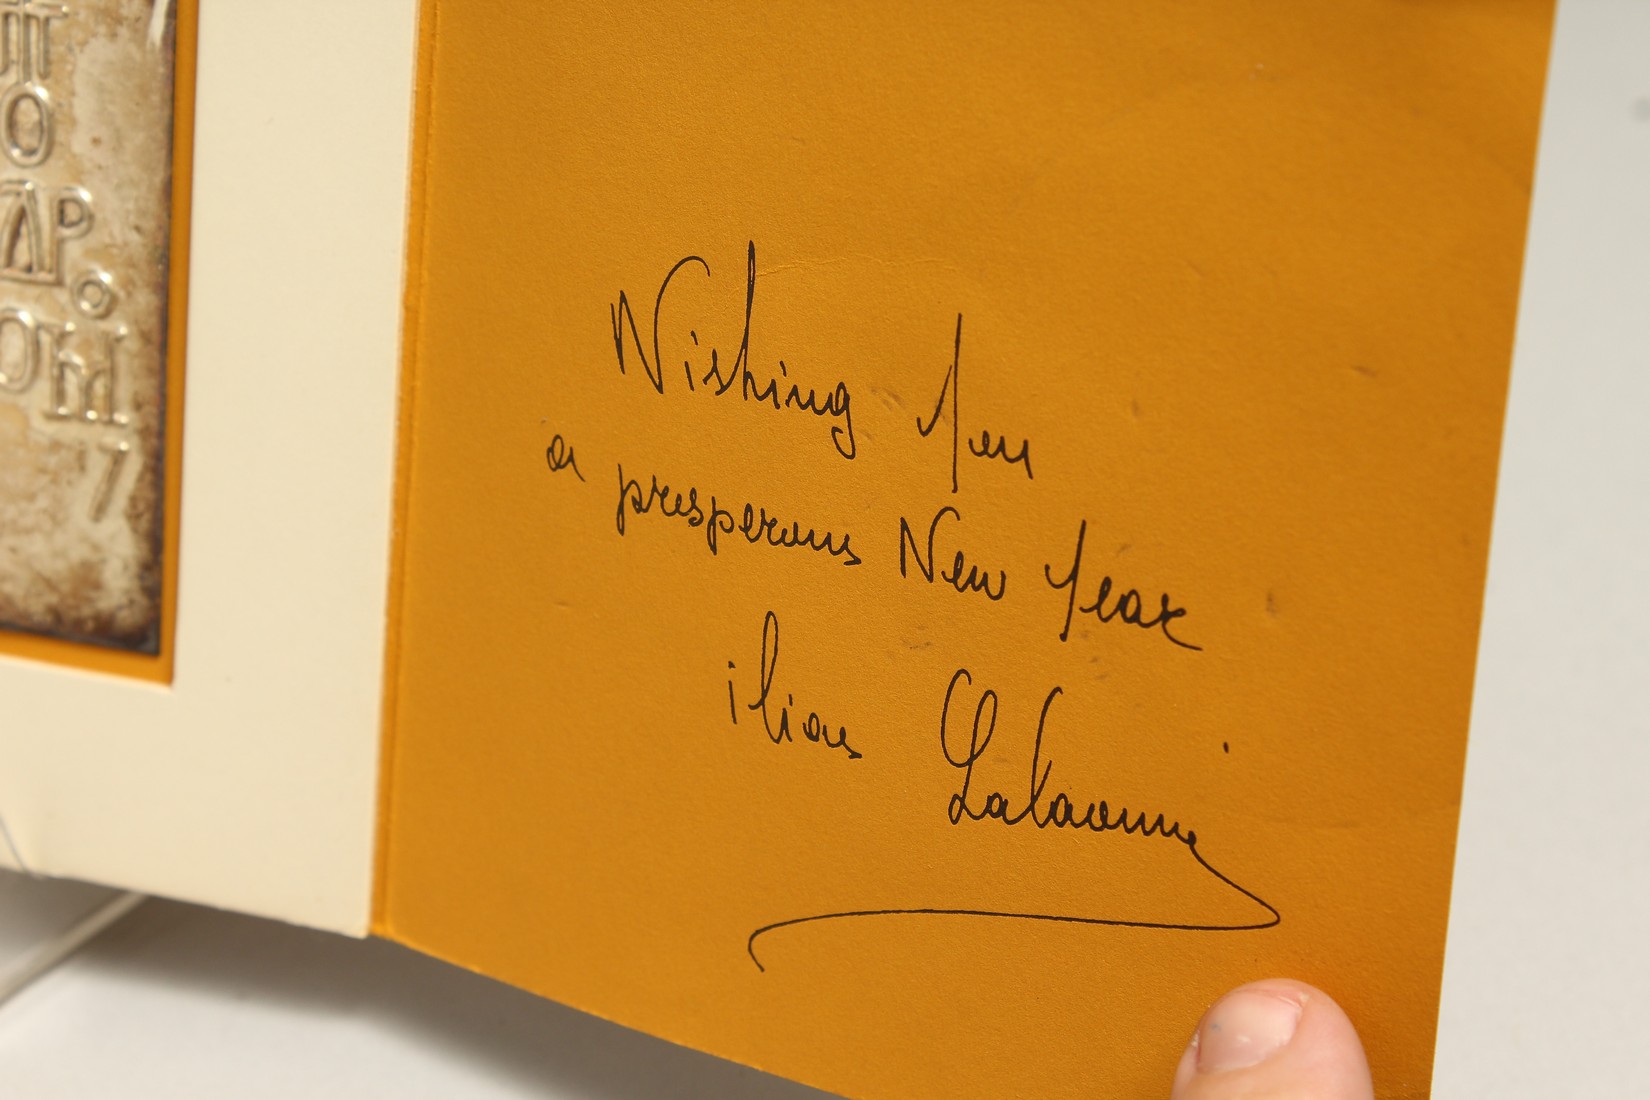 π
Ο
ΔΡ
Ο
ΟΜ
7
Wishing you
a prosperous New Year
ilias Lalaounis